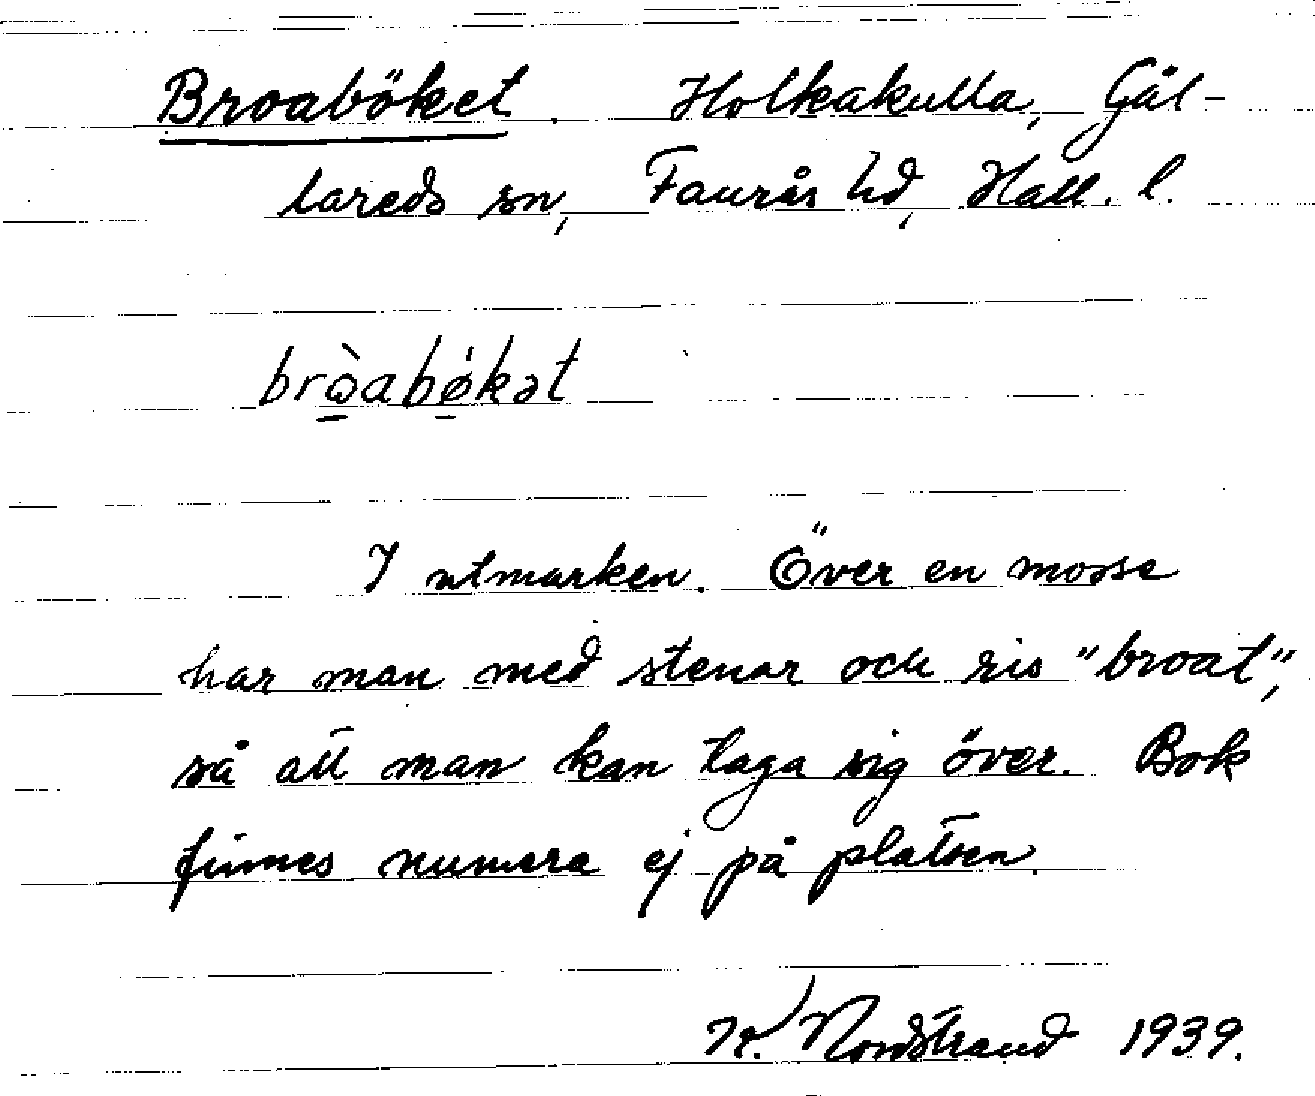 Broaböket. Holkakulla, Gäl-
lareds sn, Faurås hd, Hall. l.
bròabökət
I utmarken. Över en mosse
har man med stenar och ris "broat",
så att man kan taga sig över. Bok
finnes numera ej på platsen.
K. Nordstrand 1939.